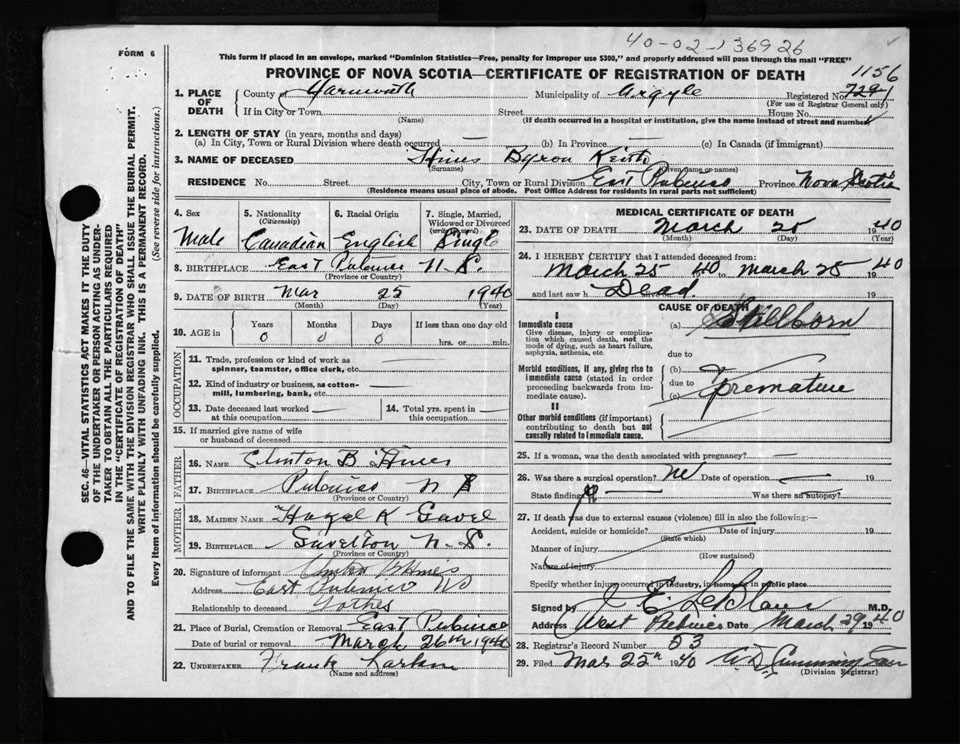 40-02-136926
FORM 6
This form if placed in an envelope, marked "Dominion Statistics—Free, penalty for improper use $300," and properly addressed will pass through the mail "FREE"
PROVINCE OF NOVA SCOTIA—CERTIFICATE OF REGISTRATION OF DEATH
1156
1. PLACE OF DEATH
County of Yarmouth Municipality of Argyle Registered No. 7291
(For use of Registrar General only)
If in City or Town Street House No.
(Name) (If death occurred in a hospital or institution, give the name instead of street and number)
2. LENGTH OF STAY (in years, months and days)
(a) In City, Town or Rural Division where death occurred — (b) In Province — (c) In Canada (if immigrant)
3. NAME OF DECEASED Hines Byron Keith
(Surname) (Given name or names)
RESIDENCE No. Street City, Town or Rural Division East Pubnico Province Nova Scotia
(Residence means usual place of abode. Post Office Address for residents in rural parts not sufficient)
4. Sex Male
5. Nationality (Citizenship) Canadian
6. Racial Origin English
7. Single, Married, Widowed or Divorced (write the word) Single
8. BIRTHPLACE East Pubnico N.S.
(Province or Country)
9. DATE OF BIRTH Mar 25 1940
(Month) (Day) (Year)
10. AGE in
Years Months Days If less than one day old
0 0 0 hrs. or min.
OCCUPATION
11. Trade, profession or kind of work as
spinner, teamster, office clerk, etc. —
12. Kind of industry or business, as cotton-
mill, lumbering, bank, etc. —
13. Date deceased last worked at this occupation —
14. Total yrs. spent in this occupation —
15. If married give name of wife
or husband of deceased
FATHER
16. NAME Clinton B Hines
17. BIRTHPLACE Pubnico N S
(Province or Country)
MOTHER
18. MAIDEN NAME Hazel K Gavel
19. BIRTHPLACE Gavelton N.S.
(Province or Country)
20. Signature of informant Clinton B Hines
Address East Pubnico NS
Relationship to deceased Father
21. Place of Burial, Cremation or Removal East Pubnico
Date of burial or removal March 26th 1940
22. UNDERTAKER Frank Larkin
(Name and address)
MEDICAL CERTIFICATE OF DEATH
23. DATE OF DEATH March 25 1940
(Month) (Day) (Year)
24. I HEREBY CERTIFY that I attended deceased from:
March 25 40 to March 25 1940
and last saw h Dead. 19
CAUSE OF DEATH
I
Immediate cause
Give disease, injury or complica-
tion which caused death, not the
mode of dying, such as heart failure,
asphyxia, asthenia, etc.
(a) Stillborn
due to
Morbid conditions, if any, giving rise to
immediate cause (stated in order
proceeding backwards from im-
mediate cause).
(b)
due to
(c) Premature
II
Other morbid conditions (if important)
contributing to death but not
causally related to immediate cause.
25. If a woman, was the death associated with pregnancy? —
26. Was there a surgical operation? No Date of operation — 19
State findings — Was there an autopsy?
27. If death was due to external causes (violence) fill in also the following:—
Accident, suicide or homicide? Date of injury 19
(State which)
Manner of injury
(How sustained)
Nature of injury
Specify whether injury occurred in industry, in home or in public place
Signed by J E LeBlanc M.D.
Address West Pubnico Date March 29 1940
28. Registrar's Record Number 23
29. Filed Mar 25th 1940
(Division Registrar)
SEC. 46—VITAL STATISTICS ACT MAKES IT THE DUTY
OF THE UNDERTAKER OR PERSON ACTING AS UNDER-
TAKER TO OBTAIN ALL THE PARTICULARS REQUIRED
IN THE "CERTIFICATE OF REGISTRATION OF DEATH"
AND TO FILE THE SAME WITH THE DIVISION REGISTRAR WHO SHALL ISSUE THE BURIAL PERMIT.
WRITE PLAINLY WITH UNFADING INK. THIS IS A PERMANENT RECORD.
Every item of information should be carefully supplied. (See reverse side for instructions.)